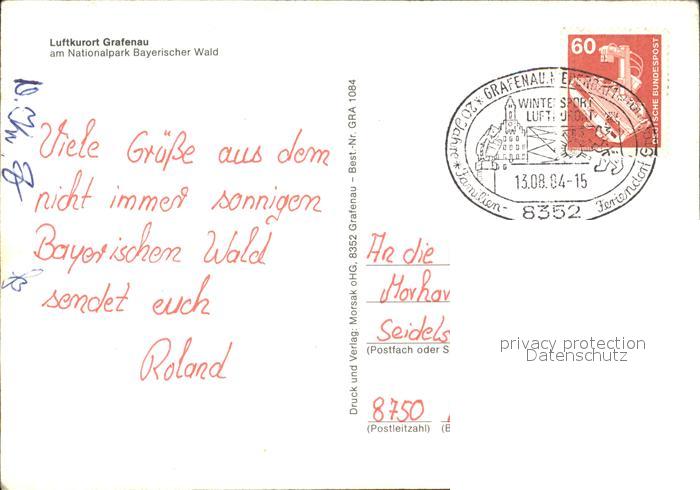 Luftkurort Grafenau
am Nationalpark Bayerischer Wald
Viele Grüße aus dem
nicht immer sonnigen
Bayerischen Wald
sendet euch
Roland
Druck und Verlag: Morsak oHG, 8352 Grafenau – Best.-Nr. GRA 1084
60
DEUTSCHE BUNDESPOST
20 Jahre * GRAFENAU
WINTERSPORT
LUFTKURORT
13.08.84-15
* Familien-
Feriendorf
8352
An die
Morhar
Seidels
(Postfach oder S
privacy protection
Datenschutz
8750
(Postleitzahl) (B